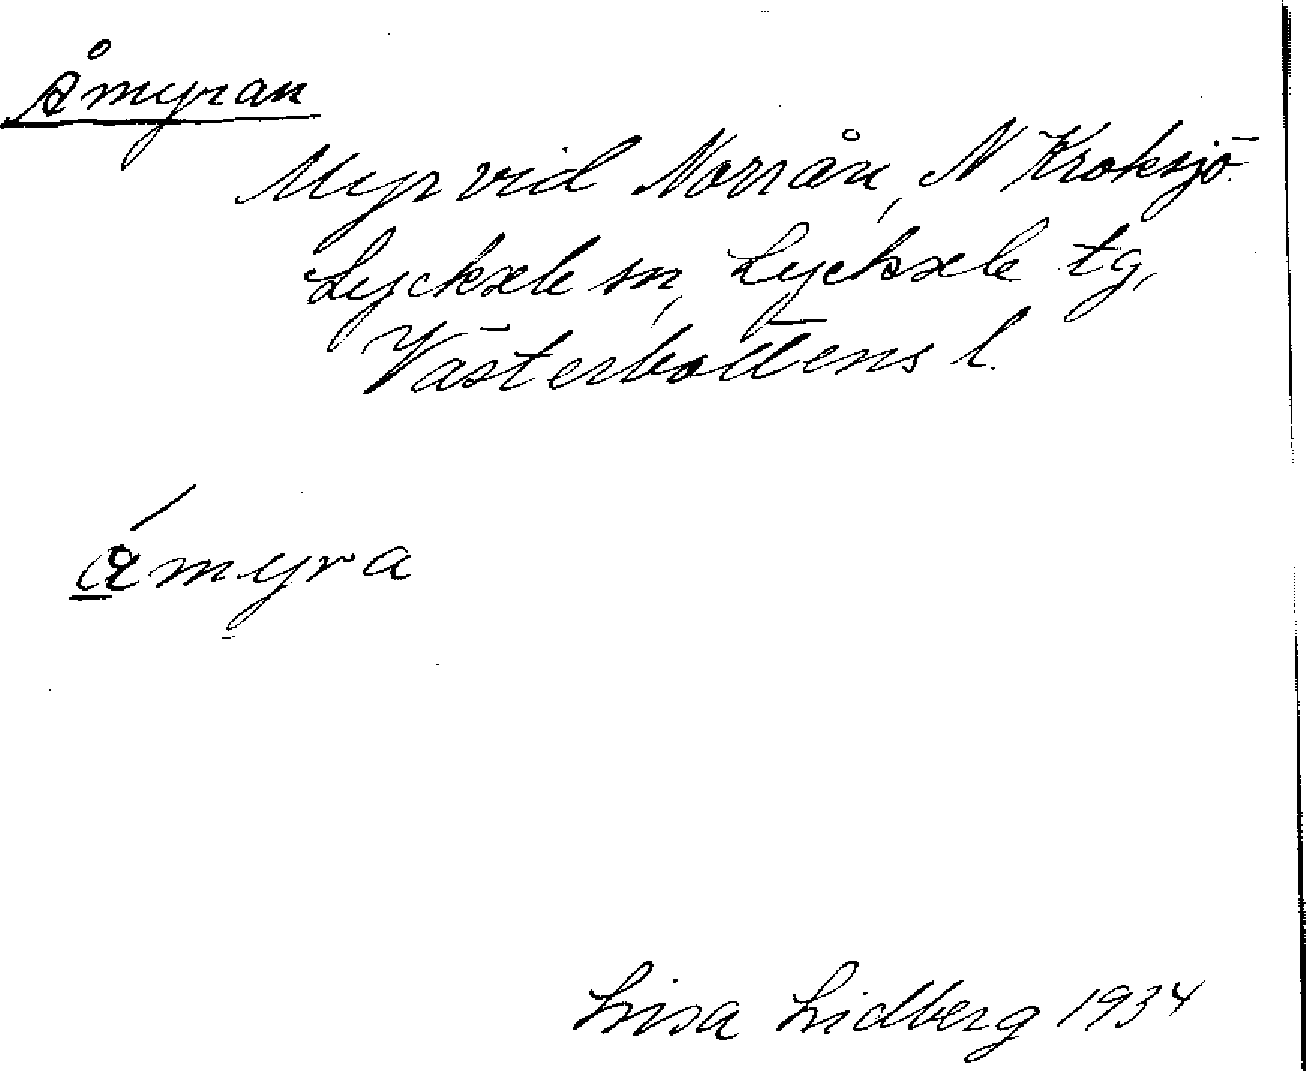 Åmyran
Myr vid Norrån, N Kroksjö.
Lycksele sn, Lycksele tg,
Västerbottens l.
åmyra
Lisa Lidberg 1934